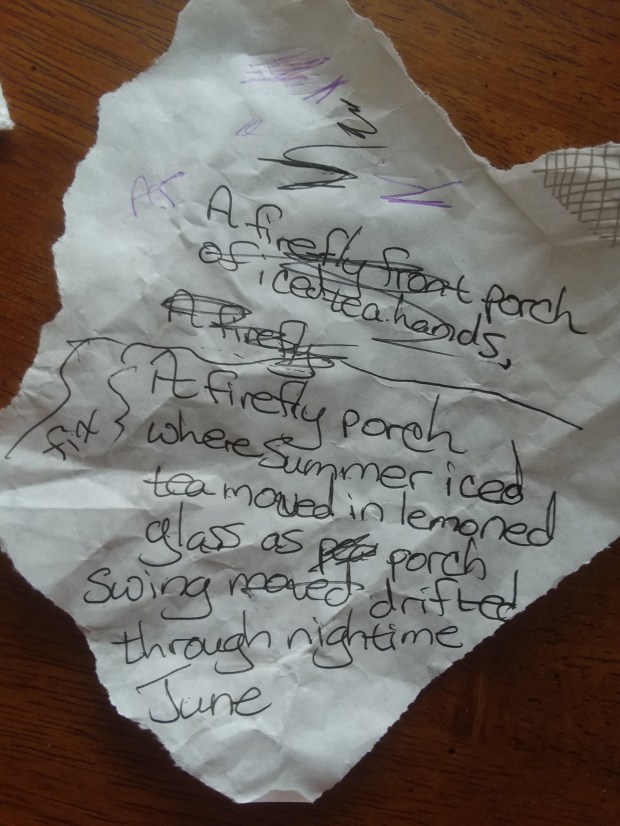 AJ
A firefly front porch
of iced tea hands,
A firefly
fix
A firefly porch
where summer iced
tea moved in lemoned
glass as porch
swing moved drifted
through nightime
June